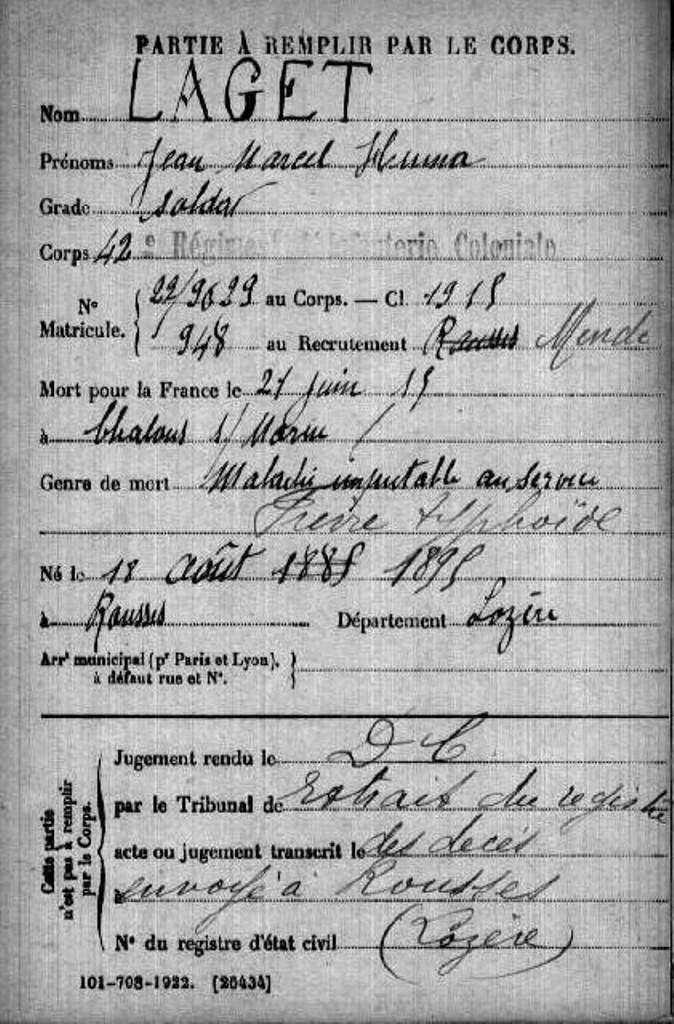 PARTIE À REMPLIR PAR LE CORPS.
Nom LAGET
Prénoms Jean Marcel
Grade soldat
Corps 42e Régiment d'Infanterie Coloniale
No Matricule. 22/9629 au Corps. — Cl. 1915
948 au Recrutement Rousses Mende
Mort pour la France le 21 juin 15
à Chalons s/ Marne
Genre de mort Maladie imputable au service
Fievre typhoïde
Né le 18 août 1885 1895
à Rousses Département Lozère
Arrt municipal (pr Paris et Lyon),
à défaut rue et No.
Cette partie n'est pas à remplir par le Corps.
Jugement rendu le D C
par le Tribunal de Extrait du registre
acte ou jugement transcrit le des décès
à envoyé à Rousses
No du registre d'état civil (Lozère)
101-708-1922. [26434]